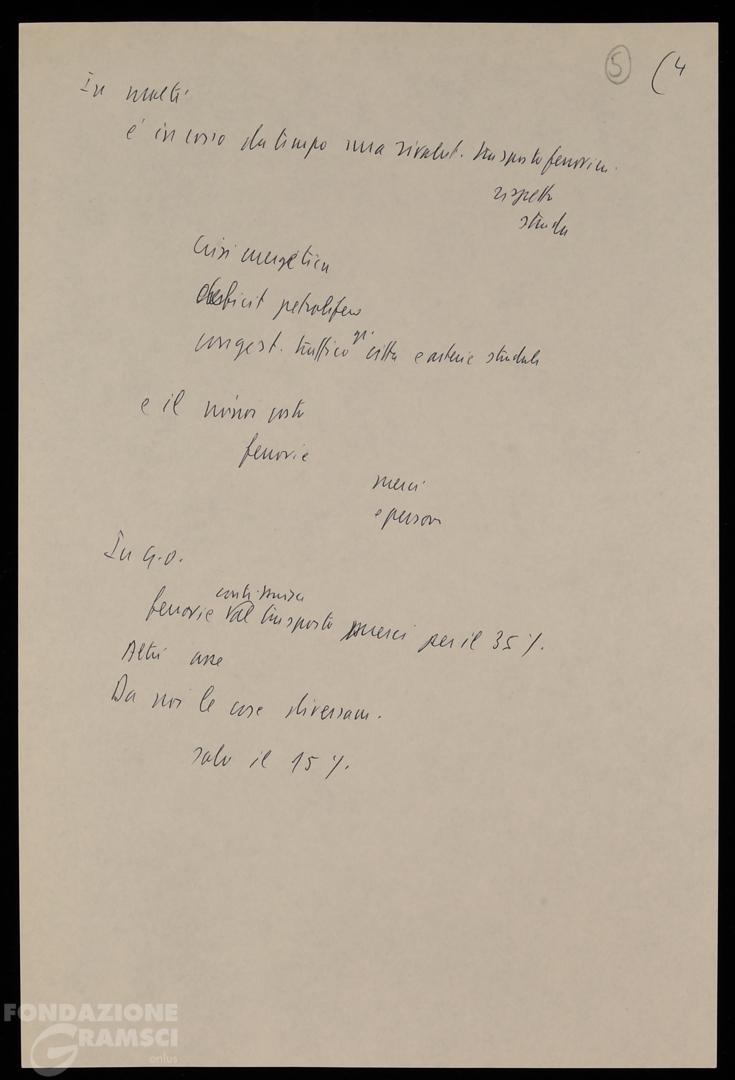 5 (4
In molti
è in corso da tempo una rivalut. trasporto ferrovia.
rispetto
strada
crisi energetica
deficit petrolifero
congest. traffico gr. città e arterie stradali
e il minor costo
ferrovie
merci
e persone
In G.O.
contribuisce
ferrovie al trasporto merci per il 35%.
Altri
Da noi le cose diversam.
solo il 15%.
FONDAZIONE
GRAMSCI
onlus